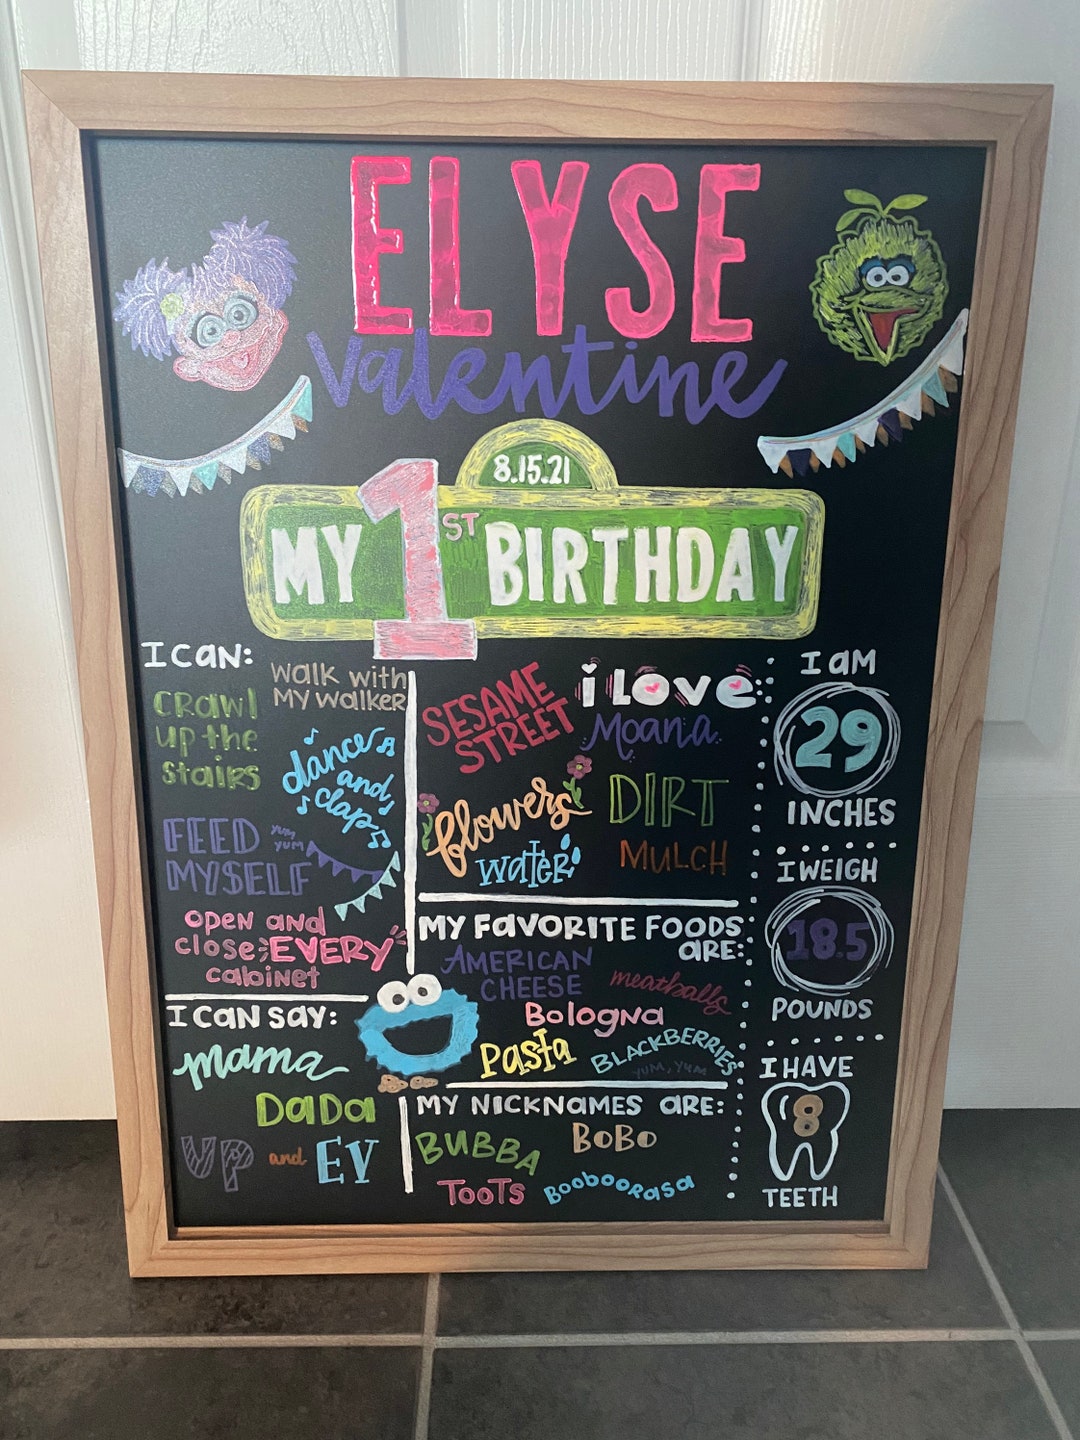 ELYSE
Valentine
8.15.21
MY 1ST BIRTHDAY
I CAN:
WALK WITH
MY WALKER
CRAWL
UP THE
STAIRS
dance
and
clap
FEED
MYSELF
YUM
YUM
OPEN AND
close EVERY
cabinet
I CAN SAY:
mama
DADA
UP and EV
i love
SESAME
STREET
Moana
flowers
DIRT
WATER
MULCH
MY FAVORITE FOODS
ARE:
AMERICAN
CHEESE
meatballs
Bologna
PASTA
BLACKBERRIES
YUM, YUM
MY NICKNAMES ARE:
BUBBA
BOBO
TOOTS
BOOBOORASA
I AM
29
INCHES
I WEIGH
18.5
POUNDS
I HAVE
8
TEETH